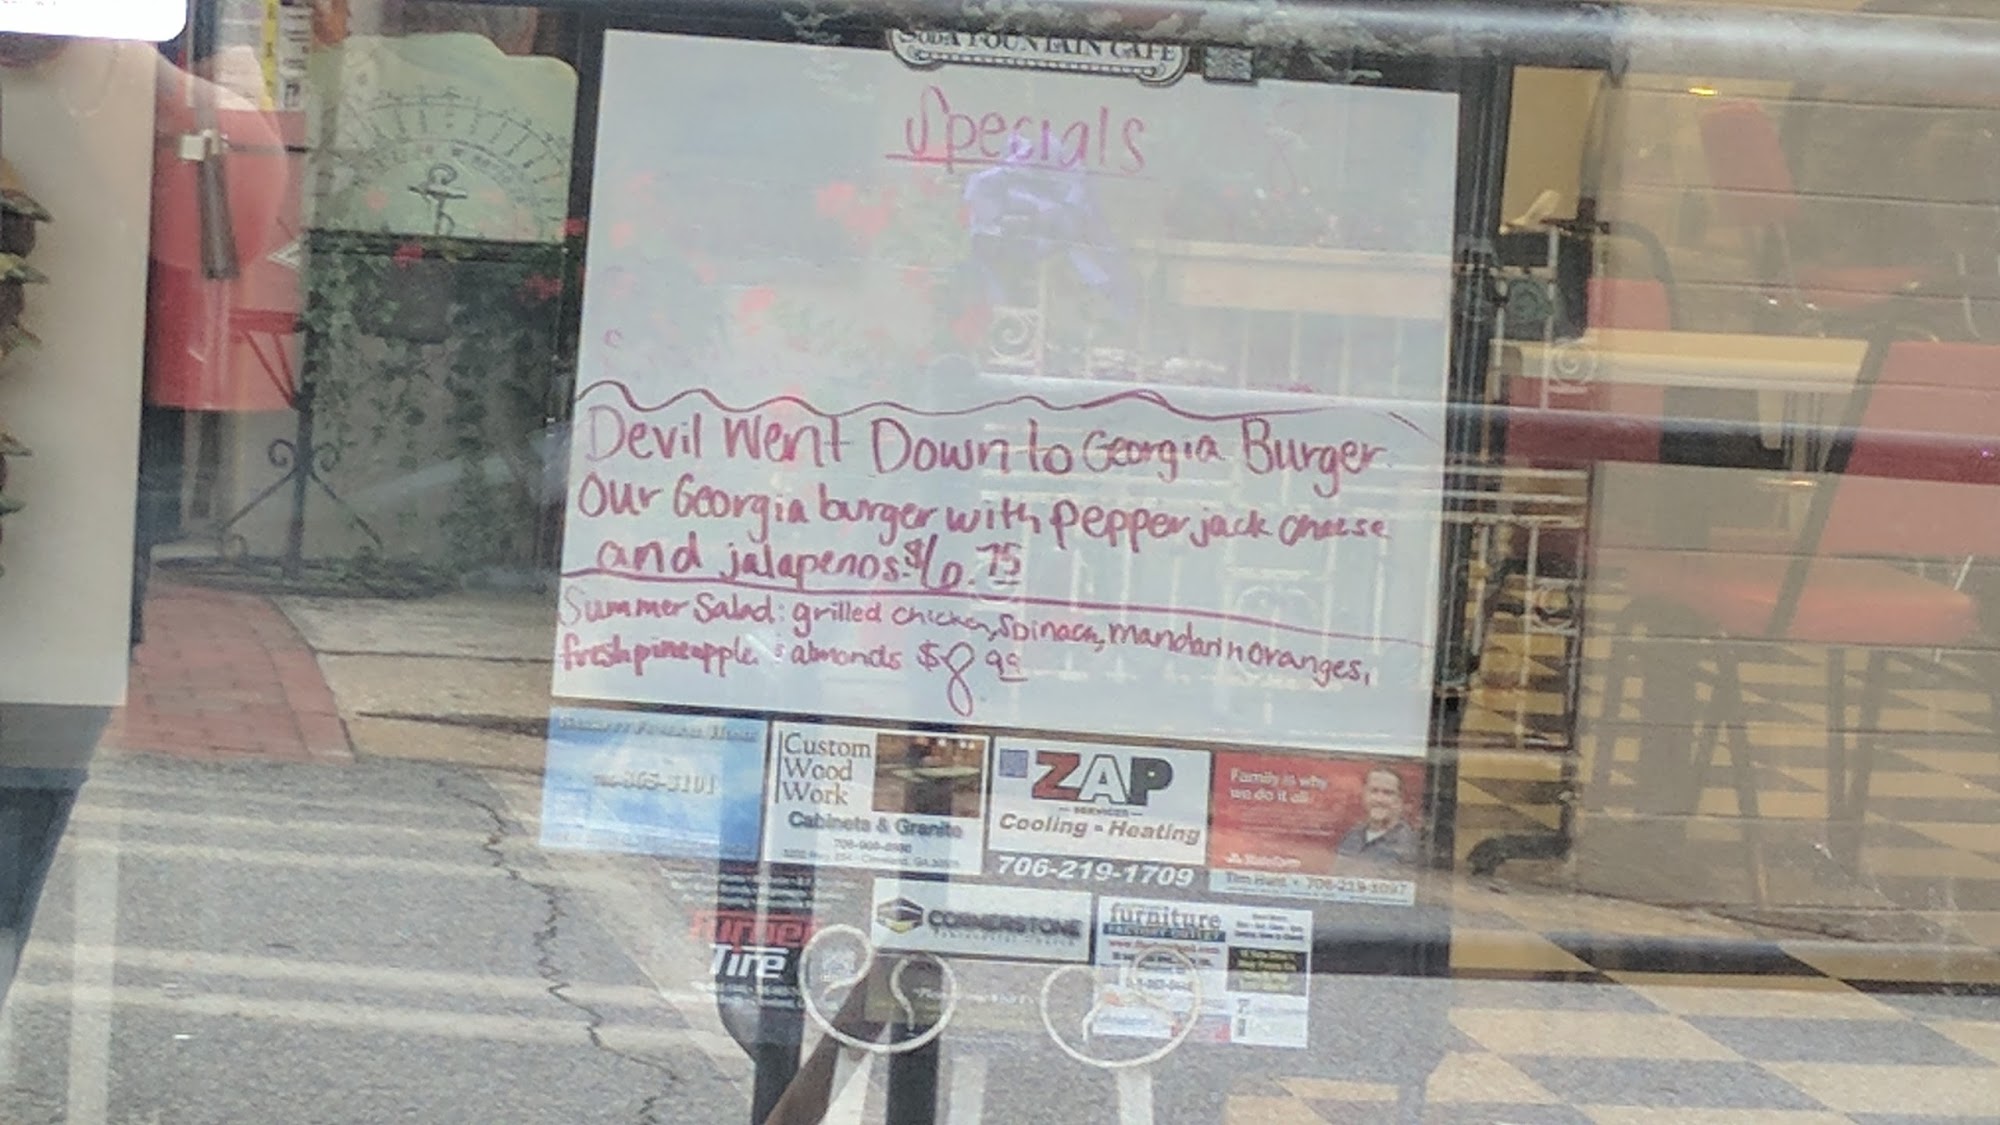 SODA FOUNTAIN CAFE
Specials
Devil Went Down to Georgia Burger
Our Georgia burger with pepper jack cheese
and jalapenos. $6.75
Summer Salad: grilled chicken, spinach, mandarin oranges,
fresh pineapple & almonds $8.99
Custom
Wood
Work
Cabinets & Granite
ZAP
SERVICES
Cooling - Heating
706-219-1709
Family is why
we do it all.
StateFarm
Turner
Tire
CORNERSTONE
furniture
FACTORY OUTLET